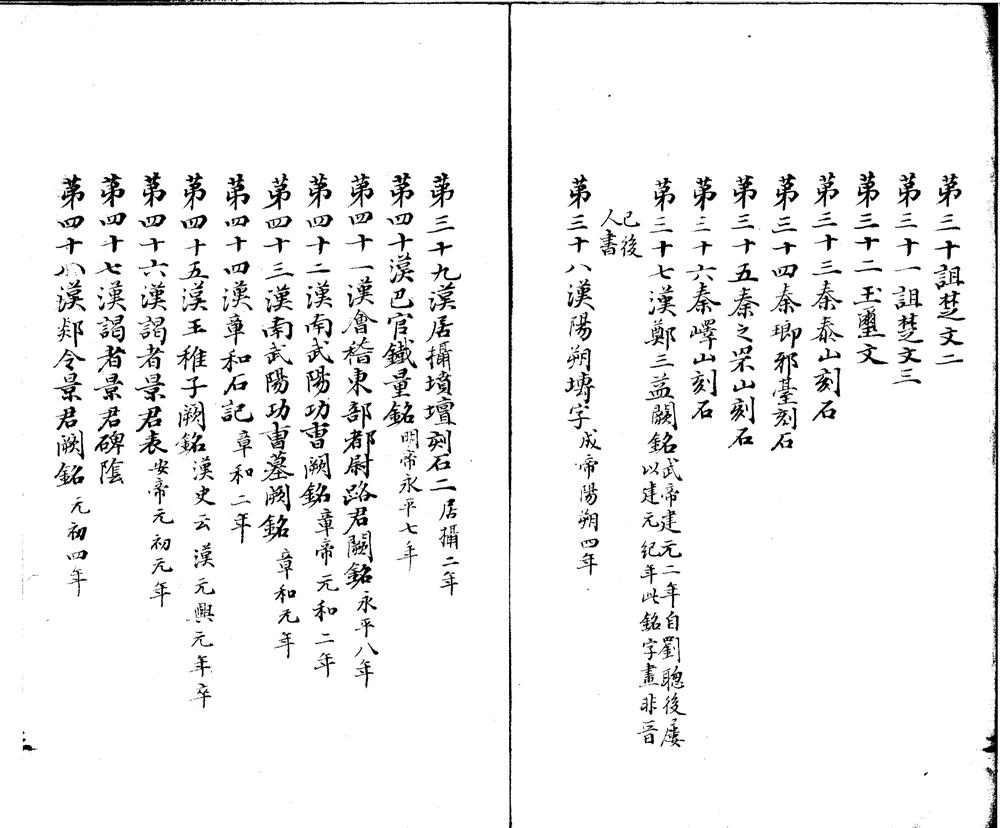 第三十詛楚文二
第三十一詛楚文三
第三十二玉璽文
第三十三秦泰山刻石
第三十四秦瑯邪臺刻石
第三十五秦之罘山刻石
第三十六秦嶧山刻石
第三十七漢鄭三益闕銘武帝建元二年自劉聰後屢
以建元紀年此銘字畫非晉
已後
人書
第三十八漢陽朔塼字成帝陽朔四年
第三十九漢居攝墳壇刻石二居攝二年
第四十漢巴官鐵量銘明帝永平七年
第四十一漢會稽東部都尉路君闕銘永平八年
第四十二漢南武陽功曹闕銘章帝元和二年
第四十三漢南武陽功曹墓闕銘章和元年
第四十四漢章和石記章和二年
第四十五漢王稚子闕銘漢史云漢元興元年卒
第四十六漢謁者景君表安帝元初元年
第四十七漢謁者景君碑陰
第四十八漢郯令景君闕銘元初四年